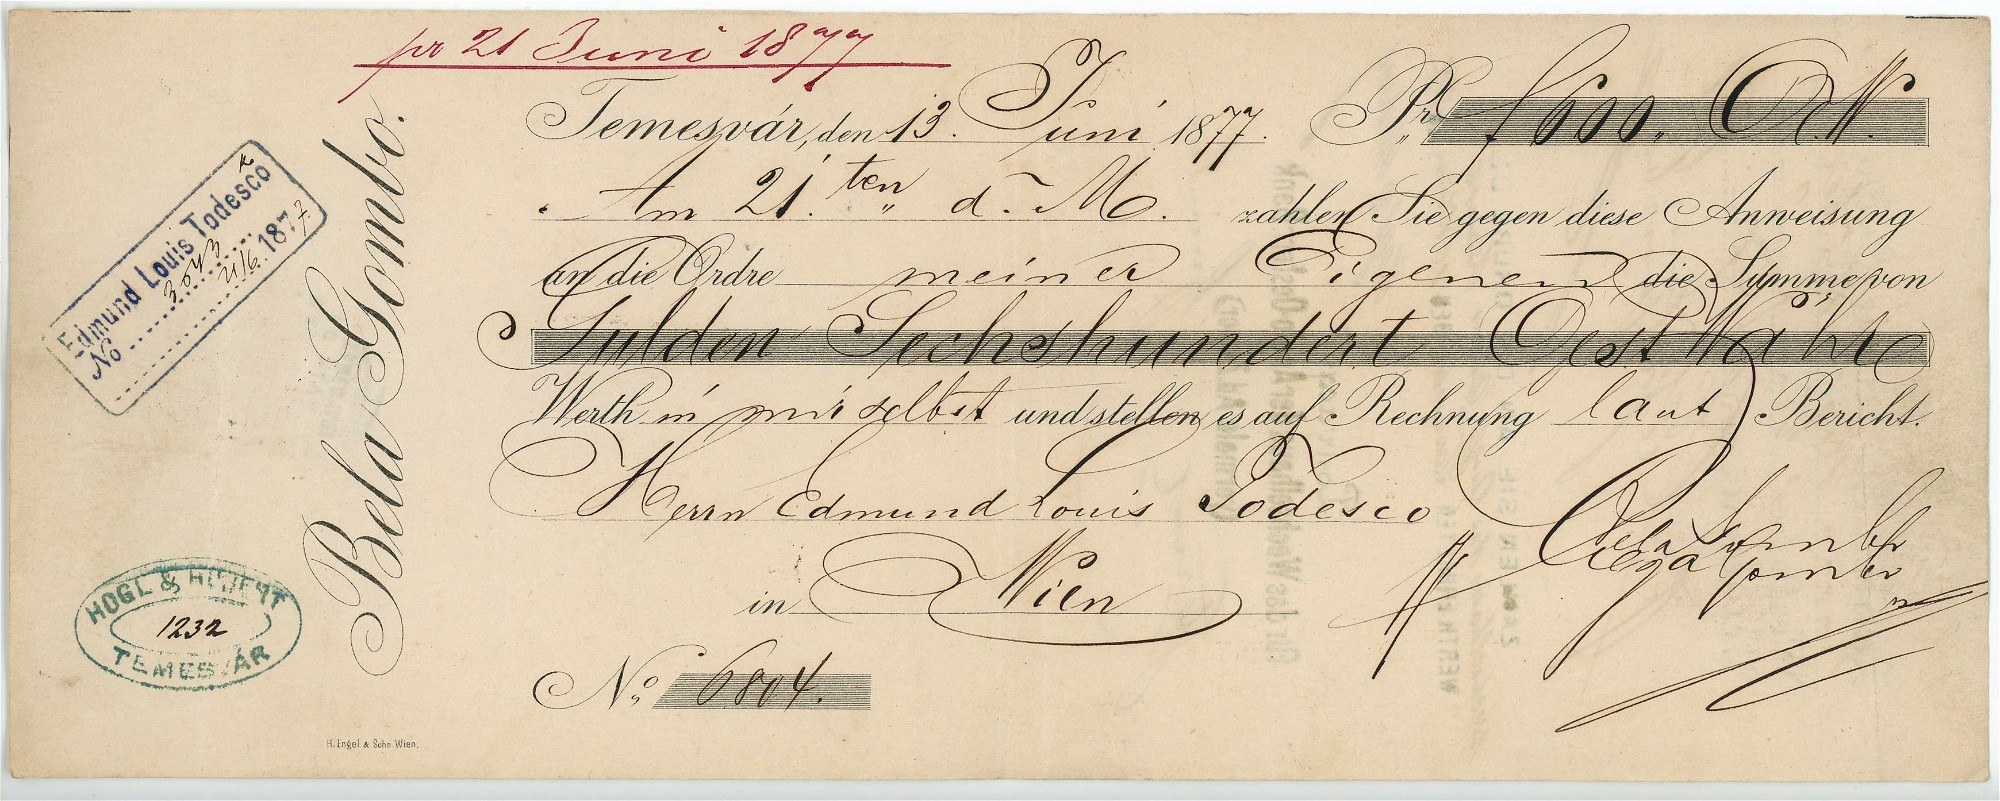 pr 21 Juni 1877
Temesvár, den 13. Juni 1877. Pr. f 600,, Ö.W.
Am 21.ten d. M. zahlen Sie gegen diese Anweisung
an die Ordre meiner Eigenen die Summe von
Gulden Sechshundert Oest Währ
Werth in mir selbst und stellen es auf Rechnung laut Bericht.
Herrn Edmund Louis Todesco
in Wien
Bela Gombo
No. 6804.
Bela Gombo.
Edmund Louis Todesco
No 3043
21/6. 1877.
HOGL &
1232
TEMESVÁR
H. Engel & Sohn. Wien.